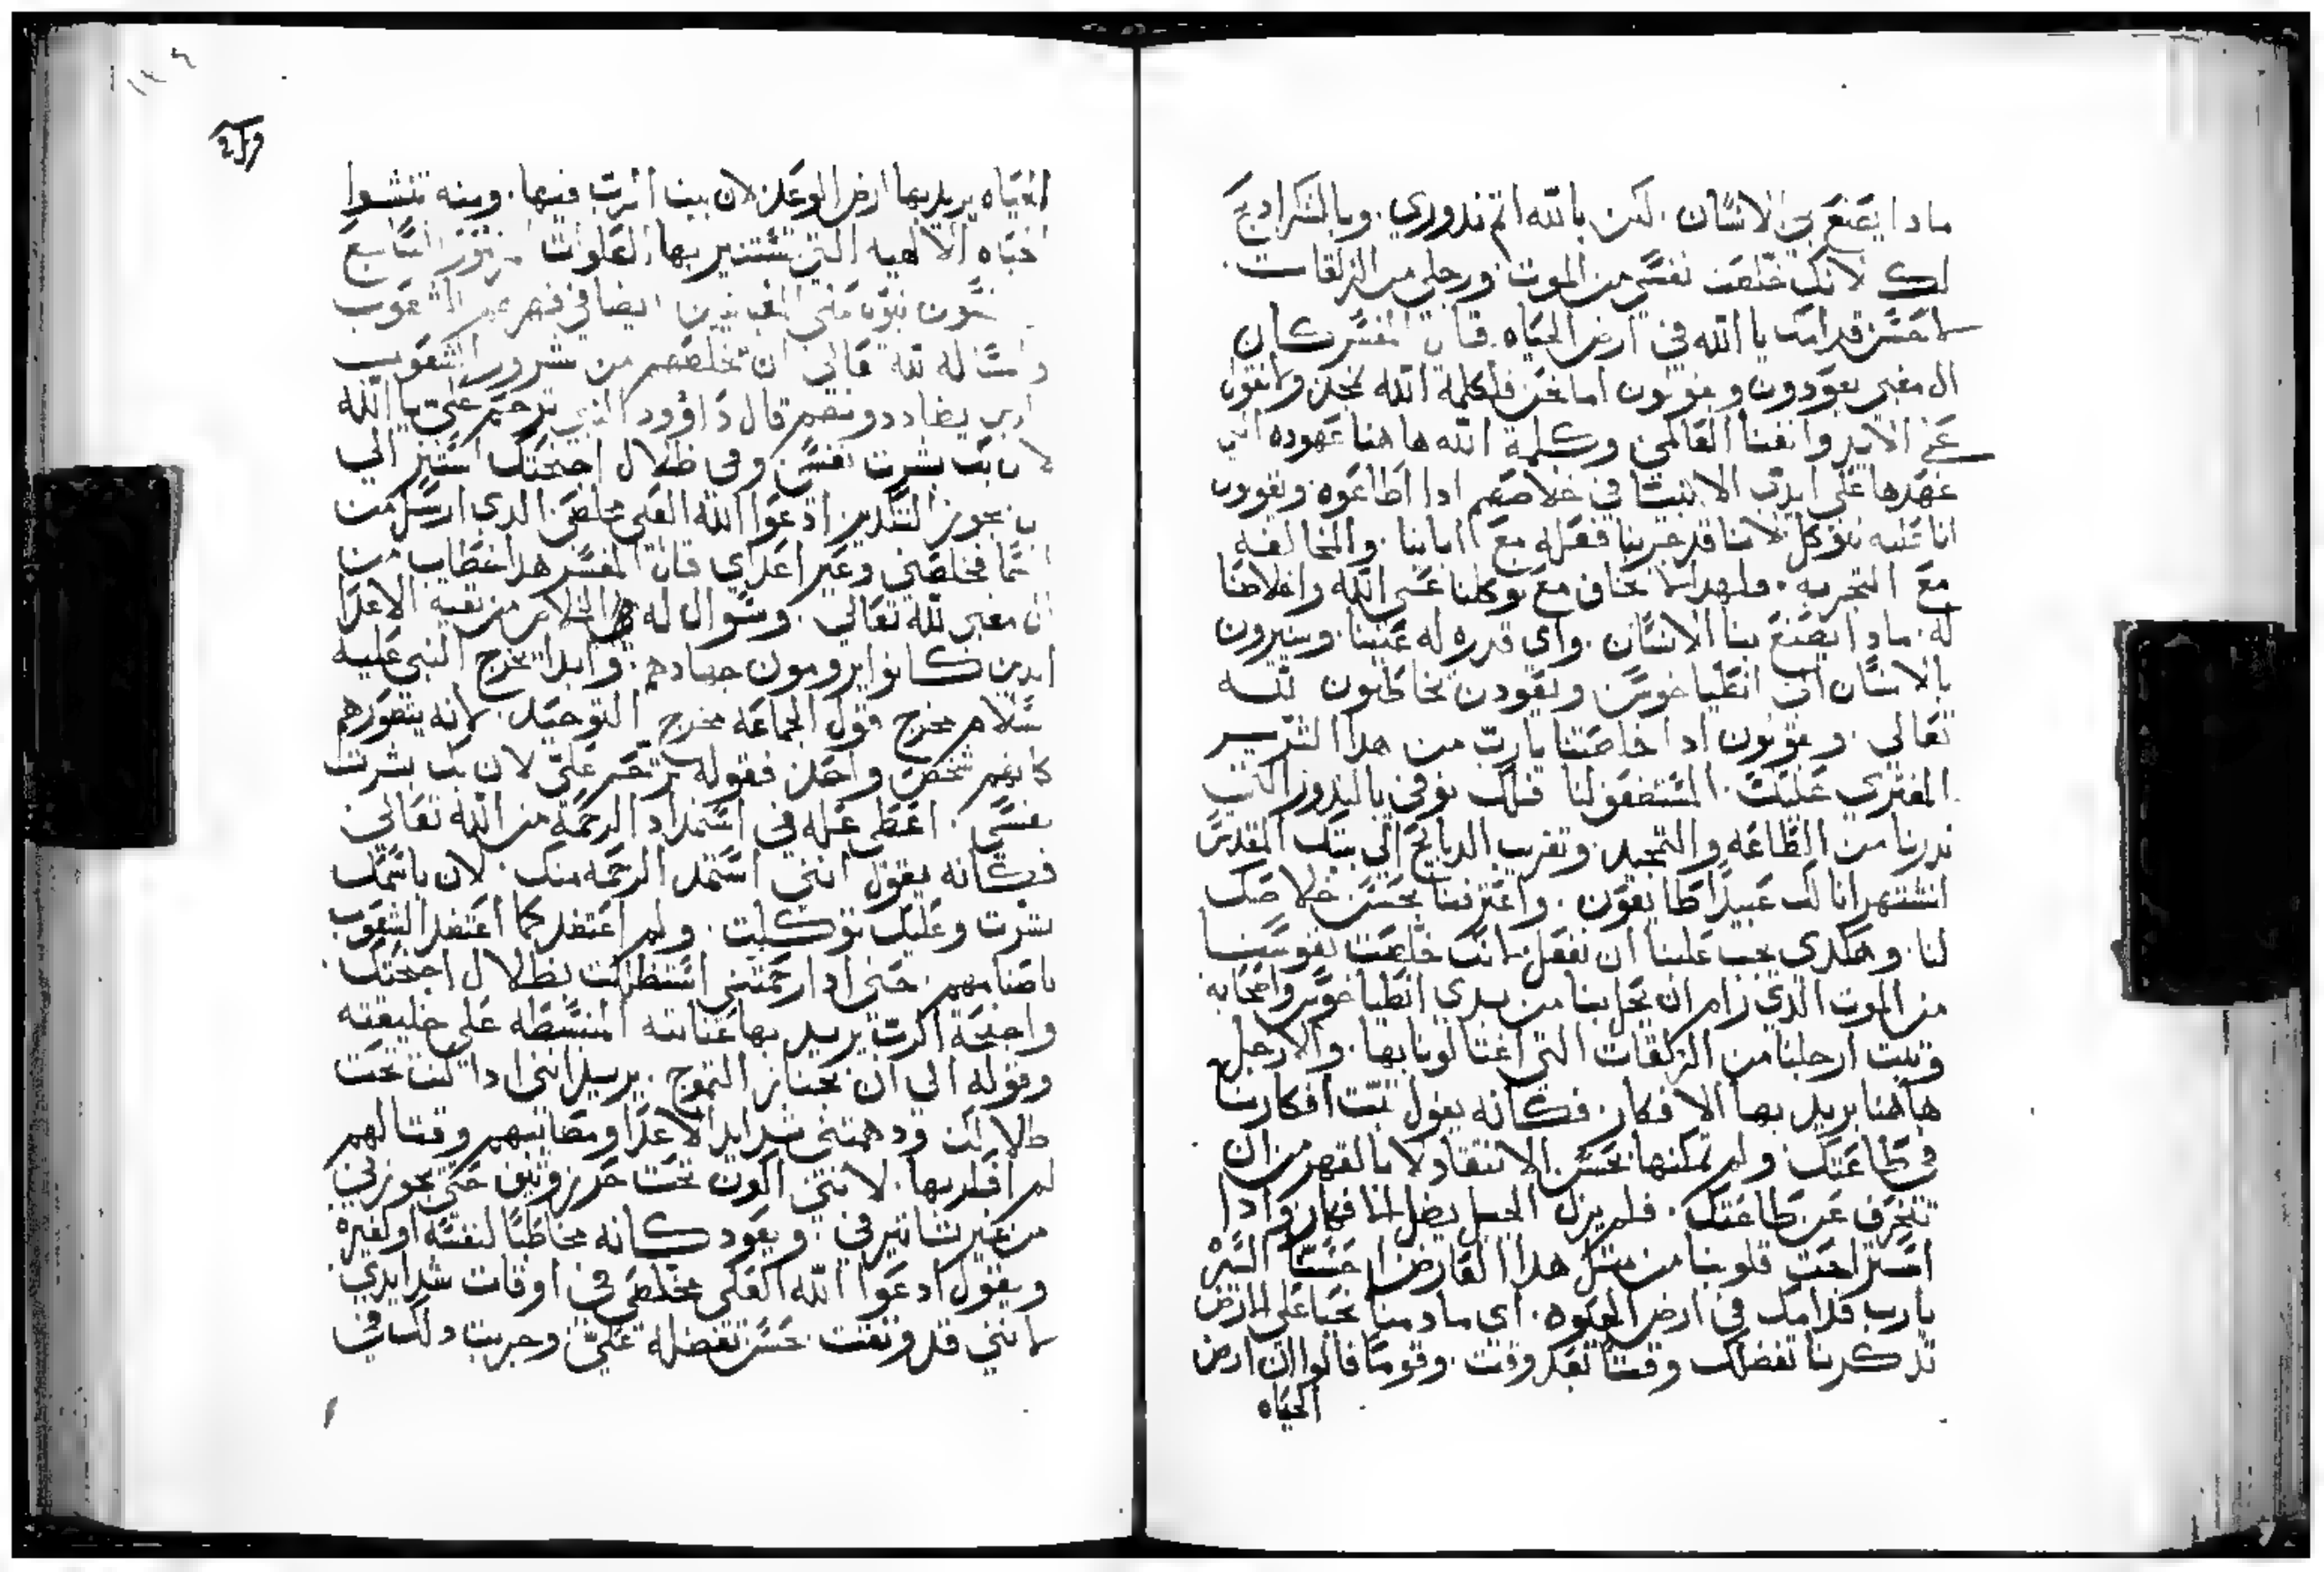 مادا يصنع بى الانسان. لكن بالله اتم ندوري. وبالشكر ادبح
لك لانك خلصت نفسي من الموت ورجلي من الزلقات.
لاحسن قدامك يا الله في ارض الحياه. قال المفسر كان
ال مقبى يعودون ويقولون اما نحن فلكلمة الله نمجد ولا نقول
عن الايد وانفسنا العالمى وكلمة الله هاهنا عهوده التي
عهدها على ايدى الانبيا في خلاصهم ادا اطاعوه ويقولون
اننا عليه نتوكل لاننا قد جربنا فعله مع ابائنا. والمخالفه
مع التجربه. فلهدا لا نخاف مع توكلنا على الله واخلاصنا
له. مادا يصنع بنا الانسان. واي قدره له علينا. ويشيرون
بالانسان الى انطياخوس ويعودون يخاطبون الله
تعالى. ويقولون ادا خلصتنا يارب من هدا الشرير
المفترى عليك. المستضعف لنا فلك نوفي بالندور التي
ندرنا من الطاعه والتمجيد. وتقريب الدبايح الى بيتك المقدس
اشتهرانا لك عبيدا طايعون. واعترفنا بحسن خلاصك
لنا. وهكدي يجب علينا ان نفعل لانك خلصت نفوسنا
من الموت الدي رام ان يحل بنا من يدي انطياخوس واصحابه
وثبت ارجلنا من الزلقات التي اغتالونا بها. والارجل
هاهنا يريد بها الافكار. فكانه يقول ثبت افكارنا
في طاعتك ولم تمكنها بحسن الانتقاد لا بالقهر من ان
تنحرف عن طاعتك. فلم يزل الحبل يضل الافهار وادا
استراحت قلوبنا من مثل هدا العارض احسنا السيره
يارب قدامك في ارض الحيوه. اي ما دمنا نحيا على الارض
تدكرنا تفضلك وقتا بعد وقت. وقوما قالوا ان ارض
الحياه
الحياه يريد بها ارض الوعد لان بيننا اثرت فيها. ومنه تنشوا
الحياه الالاهيه التي تستنير بها العلوات المزمور السابع
خمسون نبوه على المقبيين ايضا في قهرهم الشعوب
وامساله لله تعالى ان يخلصهم من شرور الشعوب
الدين يضاددونهم قال داوود النبي ترحم علي يا الله
لان بك بشرت نفسي وفي ظلال اجنحتك استتر الى
ان يجوز الشديد ادعوا الله العلي مخلصي الدي ارسل من
السما فخلصني وعير اعداي قال المفسر هدا خطاب من
ال مقبى لله تعالى. وسوال له في السلامه من بقيه الاعدا
الدين كانوا يرومون جهادهم. وابدا يخرج النبي عليه
السلام مخرج قول الجماعه مخرج التوحيد. لانه يتصورهم
كانهم شخص واحد. فقوله ترحم علي لان بك بشرت
نفسي. اعطى عله في استمداد الرحمة من الله تعالى
فكانه يقول انني استمد الرحمه منك. لان باسمك
بشرت وعليك توكلت. ولم اعتضد كما اعتضد الشعوب
باصنامهم. حتى ادا رحمتني استظللت بظلال اجنحتك
واجنحة الرب يريد بها عنايته المنبسطه على خليقته
وقوله الى ان يجتاز التموج. يريد انني ادا كنت تحت
ظلالك ودهمتني شدايد الاعدا ومصايبهم وقتالهم
لم افكر بها. لانني اكون تحت حرز وثيق حتى يجوزني
من غير تاثير في. ويعود كانه مخاطبا لنفسه او لغيره
ويقول ادعوا الله العلي مخلصي في اوقات شدايدي
لانني قد وثقت بحسن تفضله علي وجربت دلك في